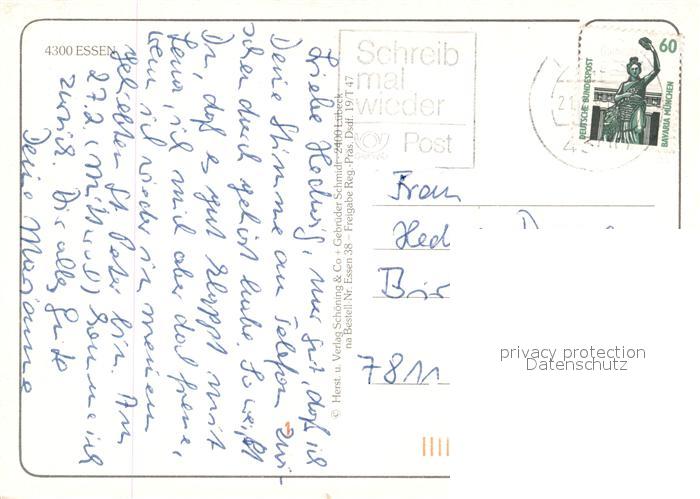 4300 ESSEN
Liebe Hedwig, nur gut, daß ich
Deine Stimme am Telefon zwi-
schen durch gehört habe. So weißt
Du, daß es gut klappt mit
Lena, ich mich aber doch freue,
wenn ich wieder in meinem
geliebten St. Peter bin. Am
27.2. (Mittwoch) komme ich
zurück. Dir alles Gute
Deine Marianne
© Herst. u. Verlag Schöning & Co + Gebrüder Schmidt · 2400 Lübeck
na Bestell: Nr. Essen 38 – Freigabe Reg.-Präs. Dsdf. 19/T 47
Schreib
mal
wieder
Post
60
DEUTSCHE BUNDESPOST
BAVARIA MÜNCHEN
Frau
Hed
Bir
7811
privacy protection
Datenschutz